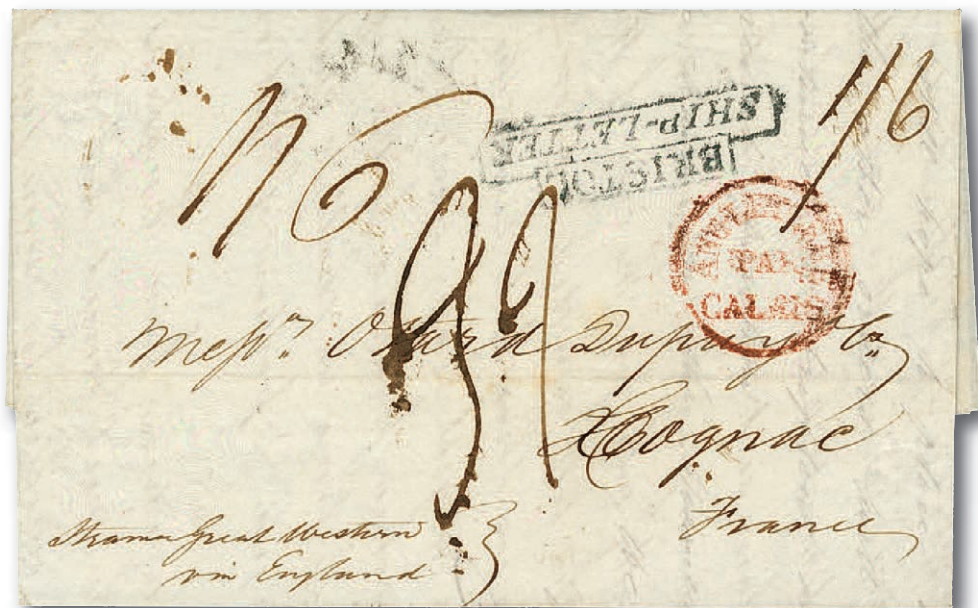 1/6
BRISTOL
SHIP-LETTER
ANGLETERRE
PAR
CALAIS
Messrs. Otard Dupuy & Co.
Cognac
France
Steamer Great Western
via England